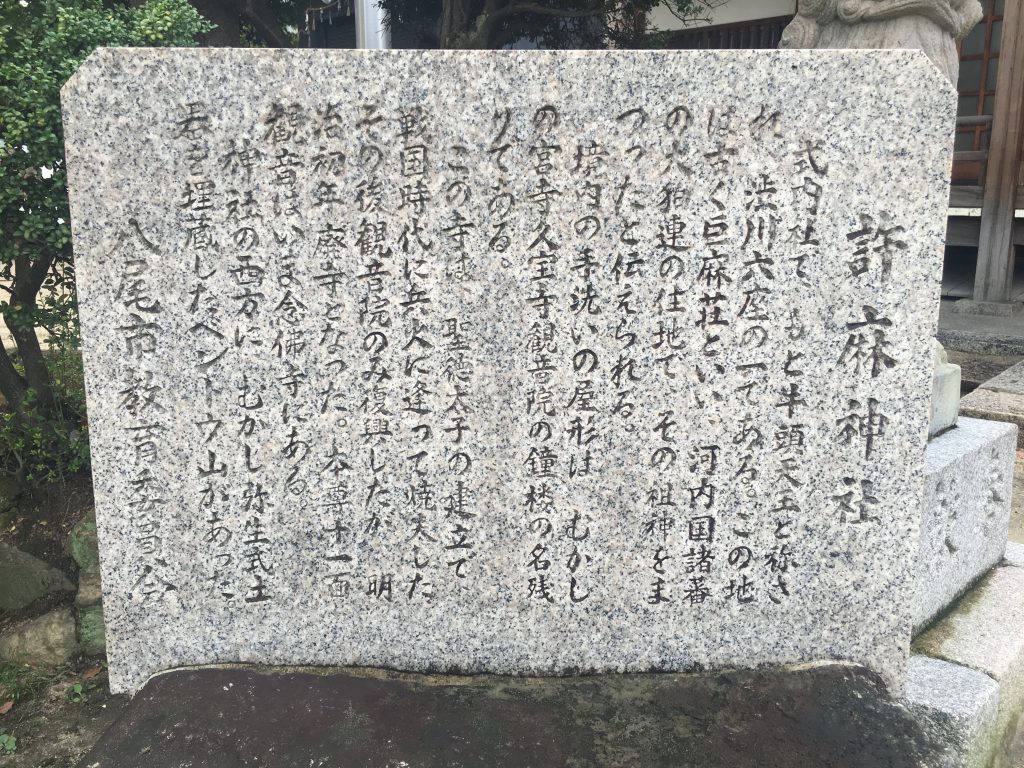 許麻神社
式内社で もと牛頭天王と称さ
れ 渋川六座の一である。この地
は古く巨麻荘といい 河内国諸蕃
の大狛連の住地で その祖神をま
つったと伝えられる。
境内の手洗いの屋形は むかし
の宮寺久宝寺観音院の鐘楼の名残
りである。
この寺は 聖徳太子の建立で
戦国時代に兵火に逢って焼失した
その後観音院のみ復興したが 明
治初年廃寺となった。本尊十一面
観音はいま念佛寺にある。
神社の西方に むかし弥生式土
器を埋蔵したベントウ山があった。
八尾市教育委員会